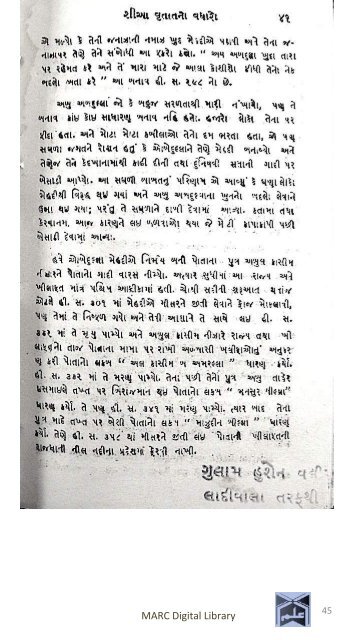 શીઆ વૃતાતનો વધારો ૪૧
એ મળ્યો કે તેની જનાઝાની નમાઝ ખુદ મેહદીએ પઢાવી અને તેના જ-
નાઝાપર તેણે તેને સંબોધી આ ફકરો કહ્યો. " અય અબદુલ્લા ખુદા તારા
પર રહેમત કરે અને તેં મારા માટે જે આલા કોશીશો કીધી તેનો નેક
બદલો અતા કરે " આ બનાવ હી. સ. ૨૯૮ નો છે.
અબુ અબદુલ્લા જો કે બહુજ સરળતાથી માર્યો ન'ખાયો, પણ તે
બનાવ કાંઇ કાંઇ સાધારણ બનાવ નહિ હતો. હજારો લોકો તેના પર
ફીદા હતા. અને મોટા મોટા કબીલાઓ તેનો દમ ભરતા હતા, એ પણ
સઘળા જગતને રોશન હતું કે ઓબેદુલ્લાને તેણે મેહદી બનાવ્યો અને
તેણેજ તેને કેદખાનામાંથી કાઢી દીની તથા દુનિયવી સત્તાની ગાદી પર
બેસાડી આપ્યો. આ સઘળી બાબતનું પરિણામ એ આવ્યું કે ઘણા લોકો
મેહદીથી વિરૂદ્ધ થઇ ગયા અને અબુ અબદુલ્લાના ખુનનો બદલો લેવાને
ઉભા થઇ ગયા; પરંતુ તે સઘળાને દાબી દેવામાં આવ્યા. કતામા તથા
કેરવાનમાં આજ કારણને લઇ બળવાઓ થયા જે મોટી કાપાકાપી પછી
બેસાડી દેવામાં આવ્યા.
હવે ઓબેદુલ્લા મેહદીએ નિર્ભય બની પોતાના પુત્ર અબુલ કાસીમ
નીઝારને પોતાનો ગાદી વારસ નીમ્યો. અત્યાર સુધીમાં આ રાજ્ય અને
ખીલાફત માત્ર પશ્ચિમ આફ્રીકામાં હતી. ચોથી સદીની શરૂઆત થતાંજ
એટલે હી. સ. ૩૦૧ માં મેહદીએ મીસરને જીતી લેવાને ફોજ મોકલાવી,
પણ તેમાં તે નિષ્ફળ ગયો અને તેની આશાને તે સાથે લઇ હી. સ.
૩૨૨ માં તે મૃત્યુ પામ્યો અને અબુલ કાસીમ નીઝારે રાજ્ય તથા ખી
લાફતનો તાજ પોતાના માથા પર રાખી અબ્બાસી ખલીફાઓનું અનુકર
ણ કરી પોતાનો લકબ " અલ કાસીમ બ અમરલ્લા " ધારણ કર્યો.
હી. સ. ૩૩૨ માં તે મરણ પામ્યો. તેના પછી તેનો પુત્ર અબુ તાહેર
ઇસમાઇલ તખ્ત પર બિરાજમાન થઇ પોતાનો લકબ " મનસુર બીલ્લા"
ધારણ કર્યો. તે પણ હી. સ. ૩૪૧ માં મરણ પામ્યો. ત્યાર બાદ તેના
પુત્ર માદે તખ્ત પર બેસી પોતાનો લકબ " માઝુદીન બીલ્લા " ધારણ
કર્યો. તેણે હી. સ. ૩૫૮ માં મીસરને જીતી લઇ પોતાની ખીલાફતની
રાજધાની નીલ નદીના પ્રદેશમાં ફેરવી નાખી.
ગુલામ હુશેન વલી
લાદીવાલા તરફથી
MARC Digital Library 45